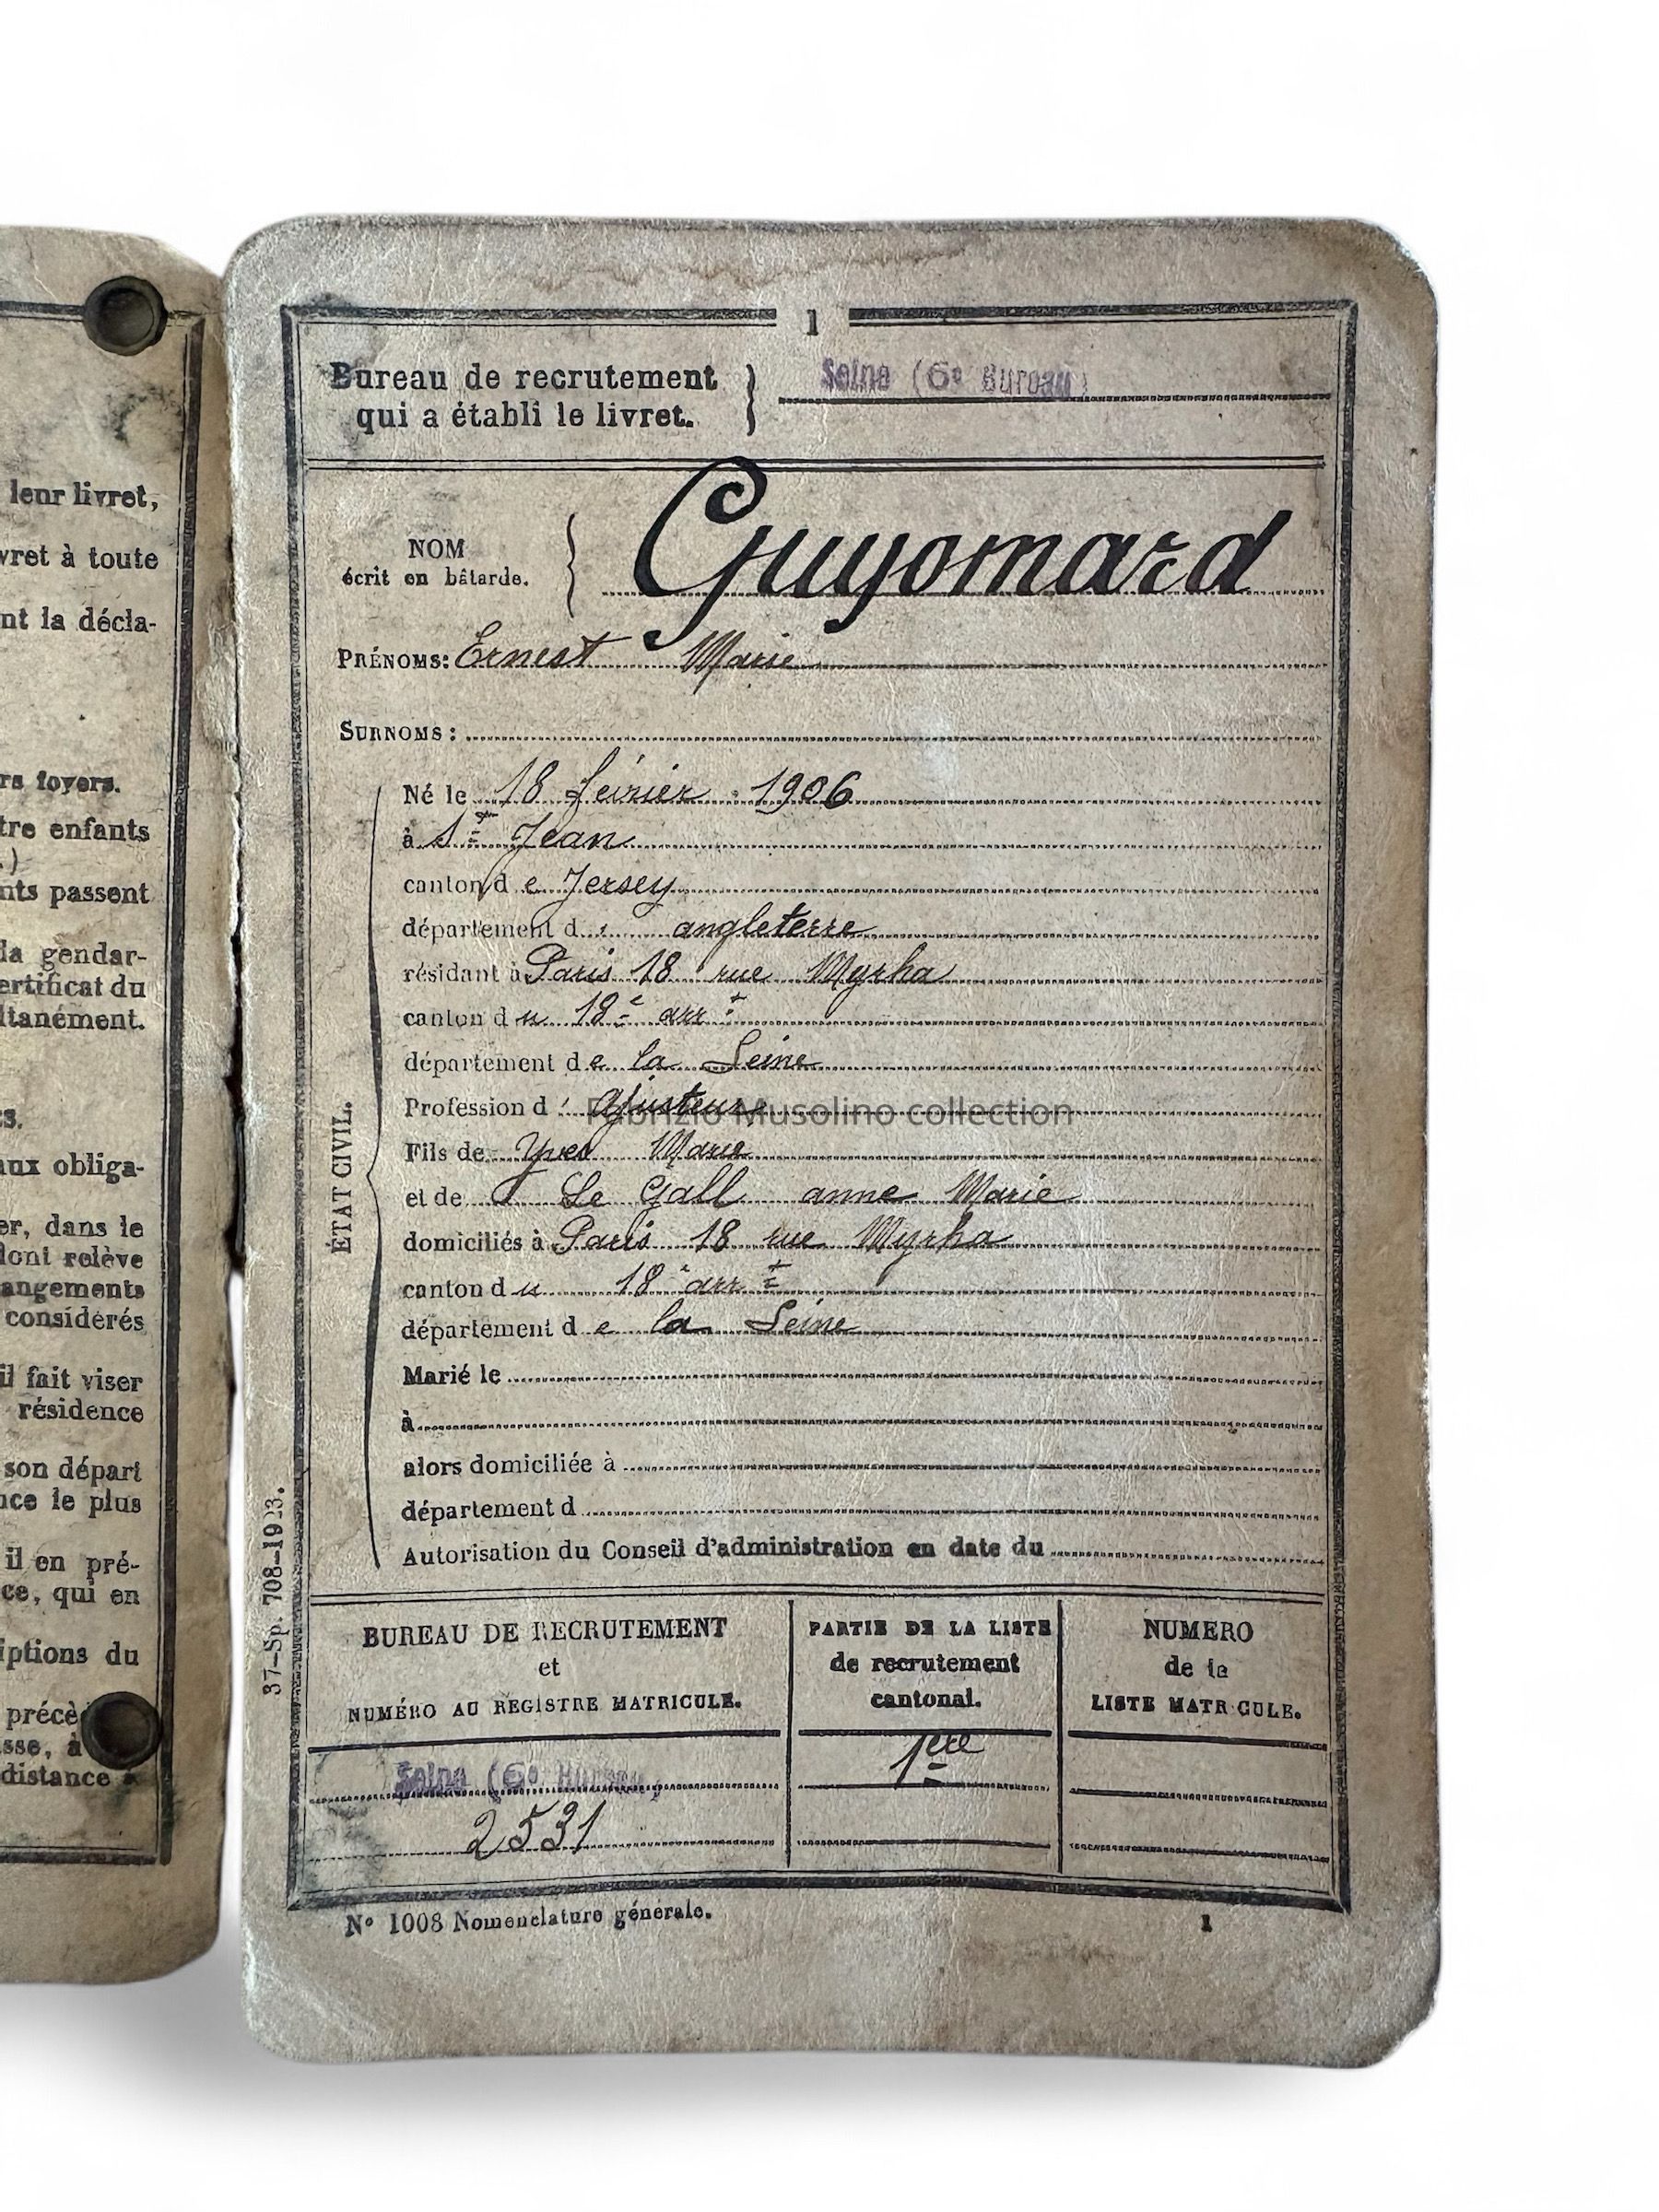 leur livret,
vret à toute
nt la décla-
rs foyers.
tre enfants
.)
nts passent
la gendar-
ertificat du
ltanément.
s.
aux obliga-
er, dans le
dont relève
angements
considérés
il fait viser
résidence
son départ
nce le plus
il en pré-
ce, qui en
iptions du
précè
sse, à
distance
1
Bureau de recrutement
qui a établi le livret.
Seine (6e Bureau)
NOM
écrit en bâtarde.
Guyomard
PRÉNOMS: Ernest Marie
SURNOMS:
ÉTAT CIVIL.
Né le 18 février 1906
à St Jean
canton de Jersey
département d angleterre
résidant à Paris 18 rue Myrha
canton du 18e arrt
département de la Seine
Profession d' ajusteur
Fils de Yves Marie
et de Le Gall anne Marie
domiciliés à Paris 18 rue Myrha
canton du 18e arrt
département de la Seine
Marié le
à
alors domiciliée à
département d
Autorisation du Conseil d'administration en date du
Fabrizio Musolino collection
37-Sp. 708-1923.
BUREAU DE RECRUTEMENT
et
NUMÉRO AU REGISTRE MATRICULE.
Seine (6e Bureau)
2531
PARTIE DE LA LISTE
de recrutement
cantonal.
1ère
NUMERO
de la
LISTE MATRICULE.
N° 1008 Nomenclature générale.
1